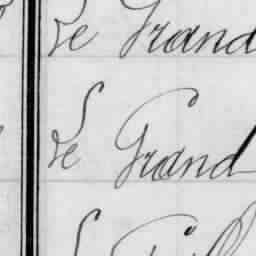 Le Grand
Le Grand